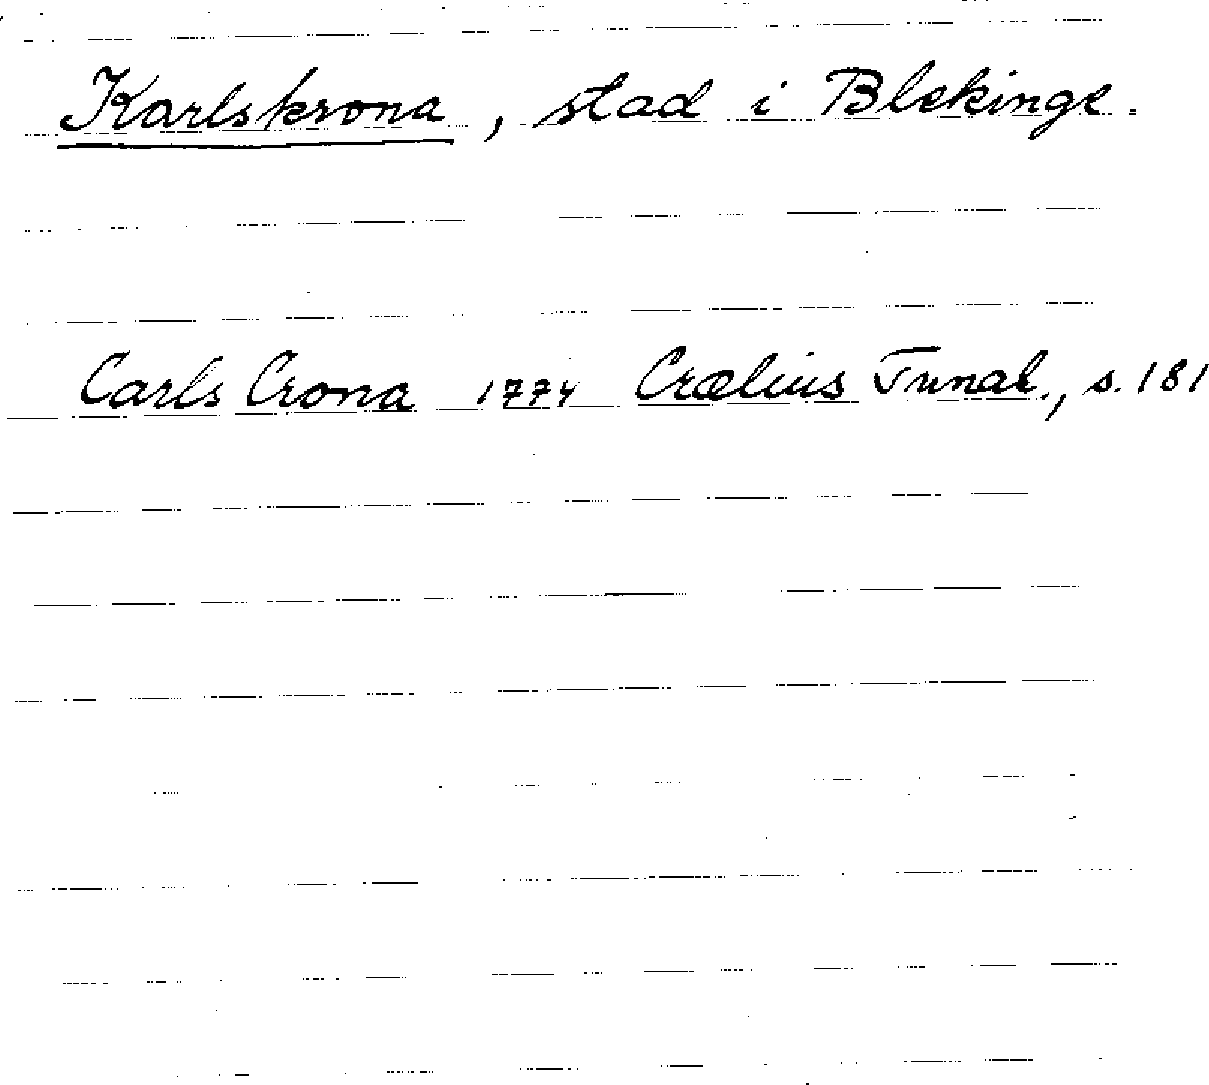 Karlskrona, stad i Blekinge.
Carls Crona 1774 Crælius Tunal., s. 181